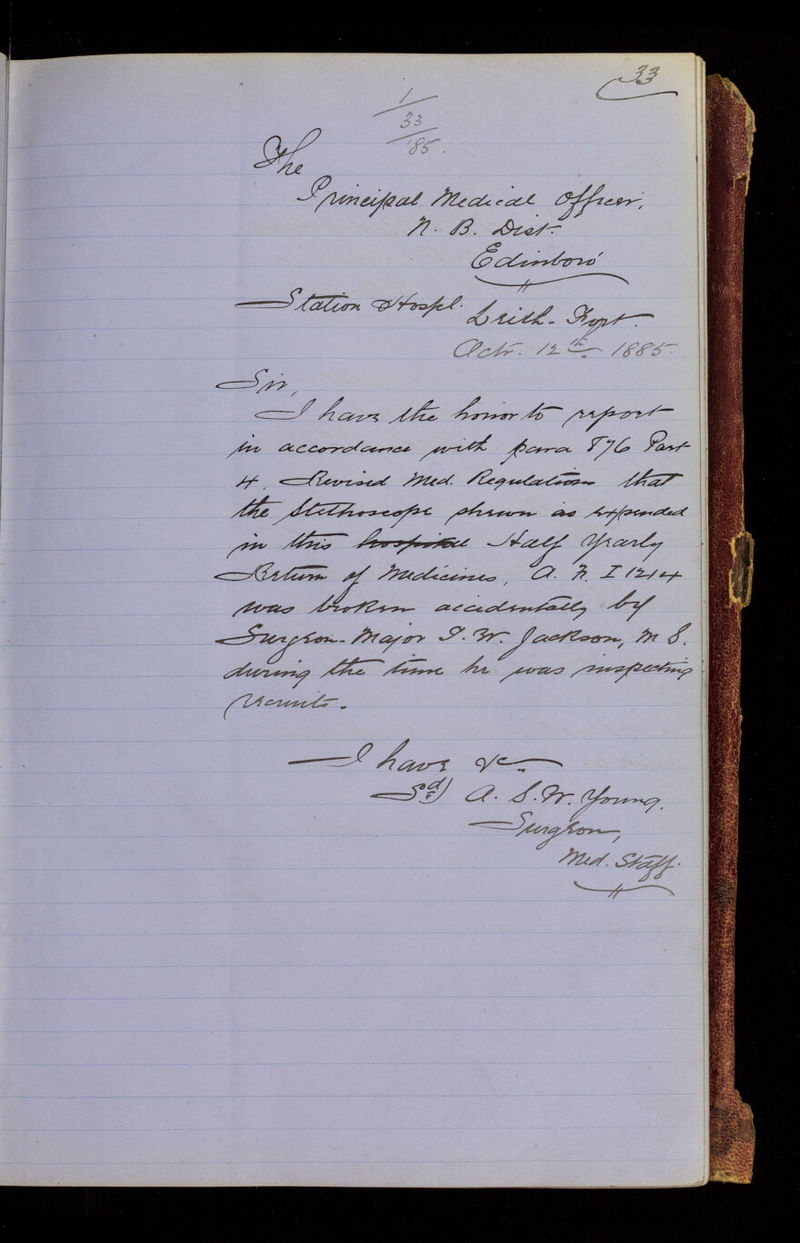 33
1
33
'85.
The
Principal Medical Officer,
N. B. Dist.
Edinboro'
Station Hospl.
Leith Fort.
Octr. 12th 1885.
Sir,
I have the honor to report
in accordance with para 876 Part
4, Revised Med. Regulations that
the Stethoscope shewn as expended
in this hospital Half Yearly
Return of Medicines, A. F. I 1214
was broken accidentally by
Surgeon-Major W. Jackson, M S.
during the time he was inspecting
recruits.
I have &c
Sd) A. S. W. Young.
Surgeon,
Med. Staff.